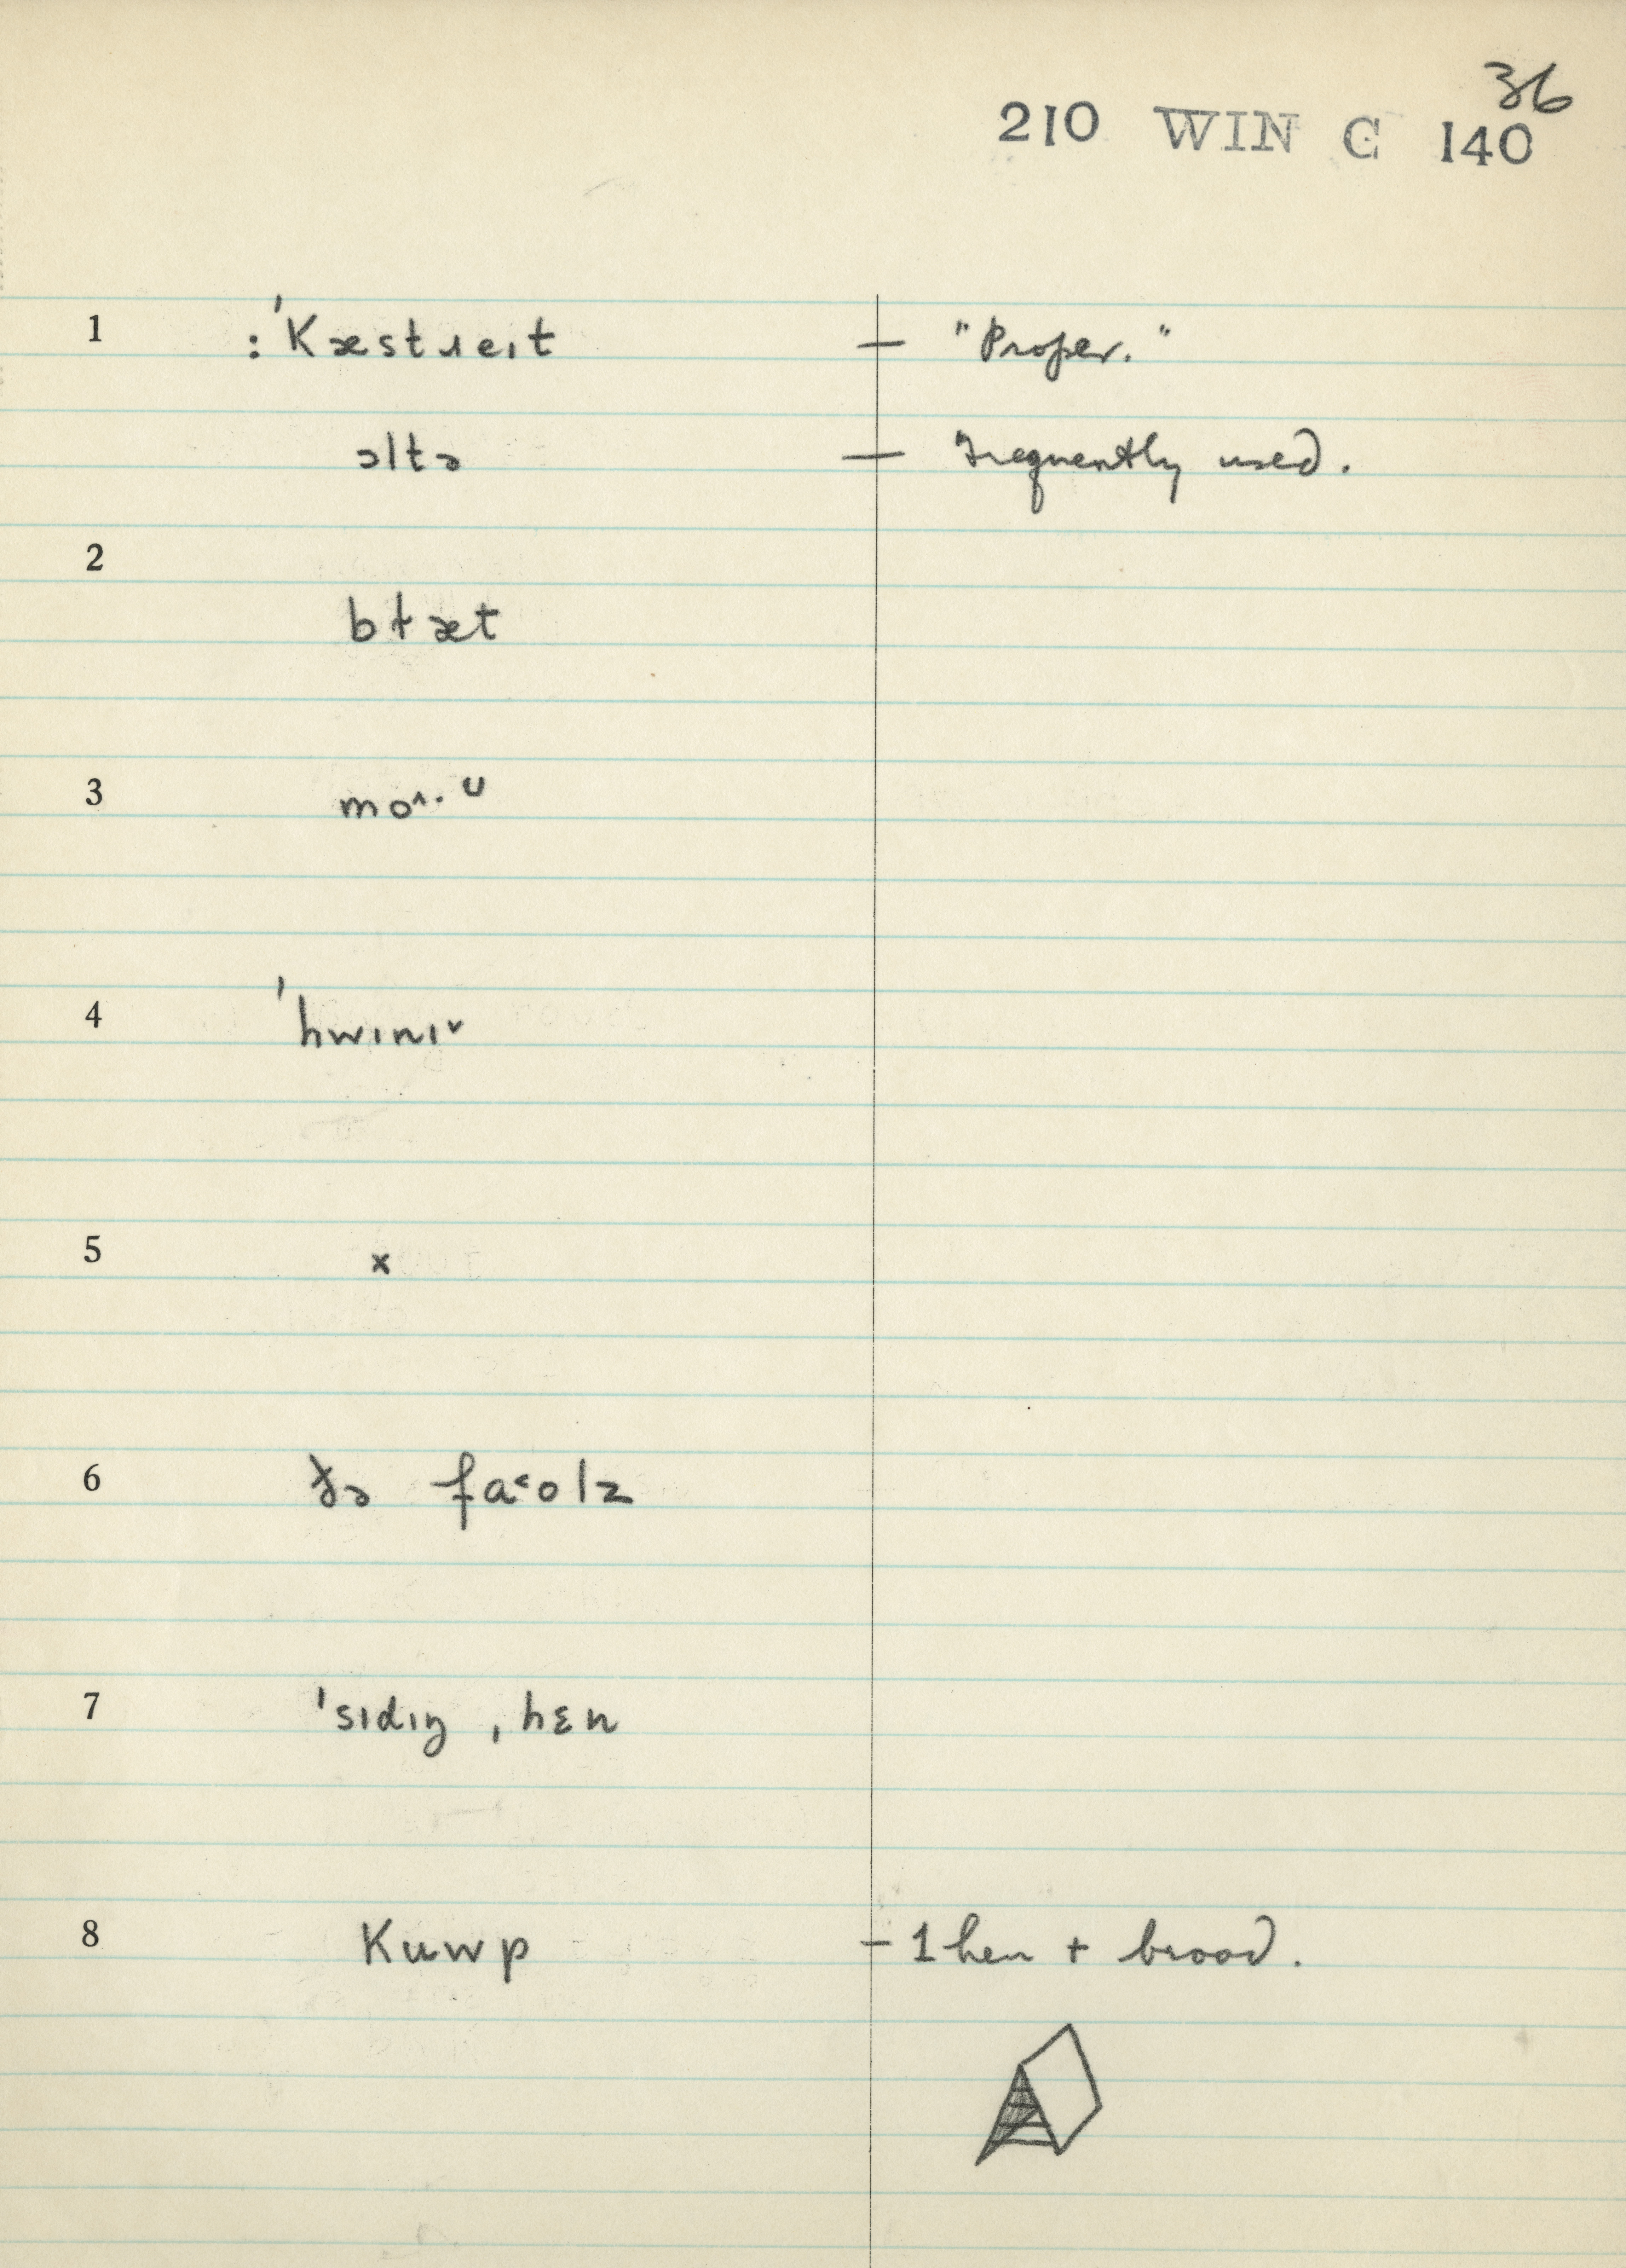 36
210 WIN C 140
1 :ˈKæstɹeɪt — "Proper."
ɔltɚ — Frequently used.
2 bɫæt
3 mo˄·ᵁ
4 ˈhwɪnɪ˅
5 x
6 ðə fa˂olz
7 ˈsɪdɪŋ ˌhɛn
8 Kuwp – 1 hen + brood.